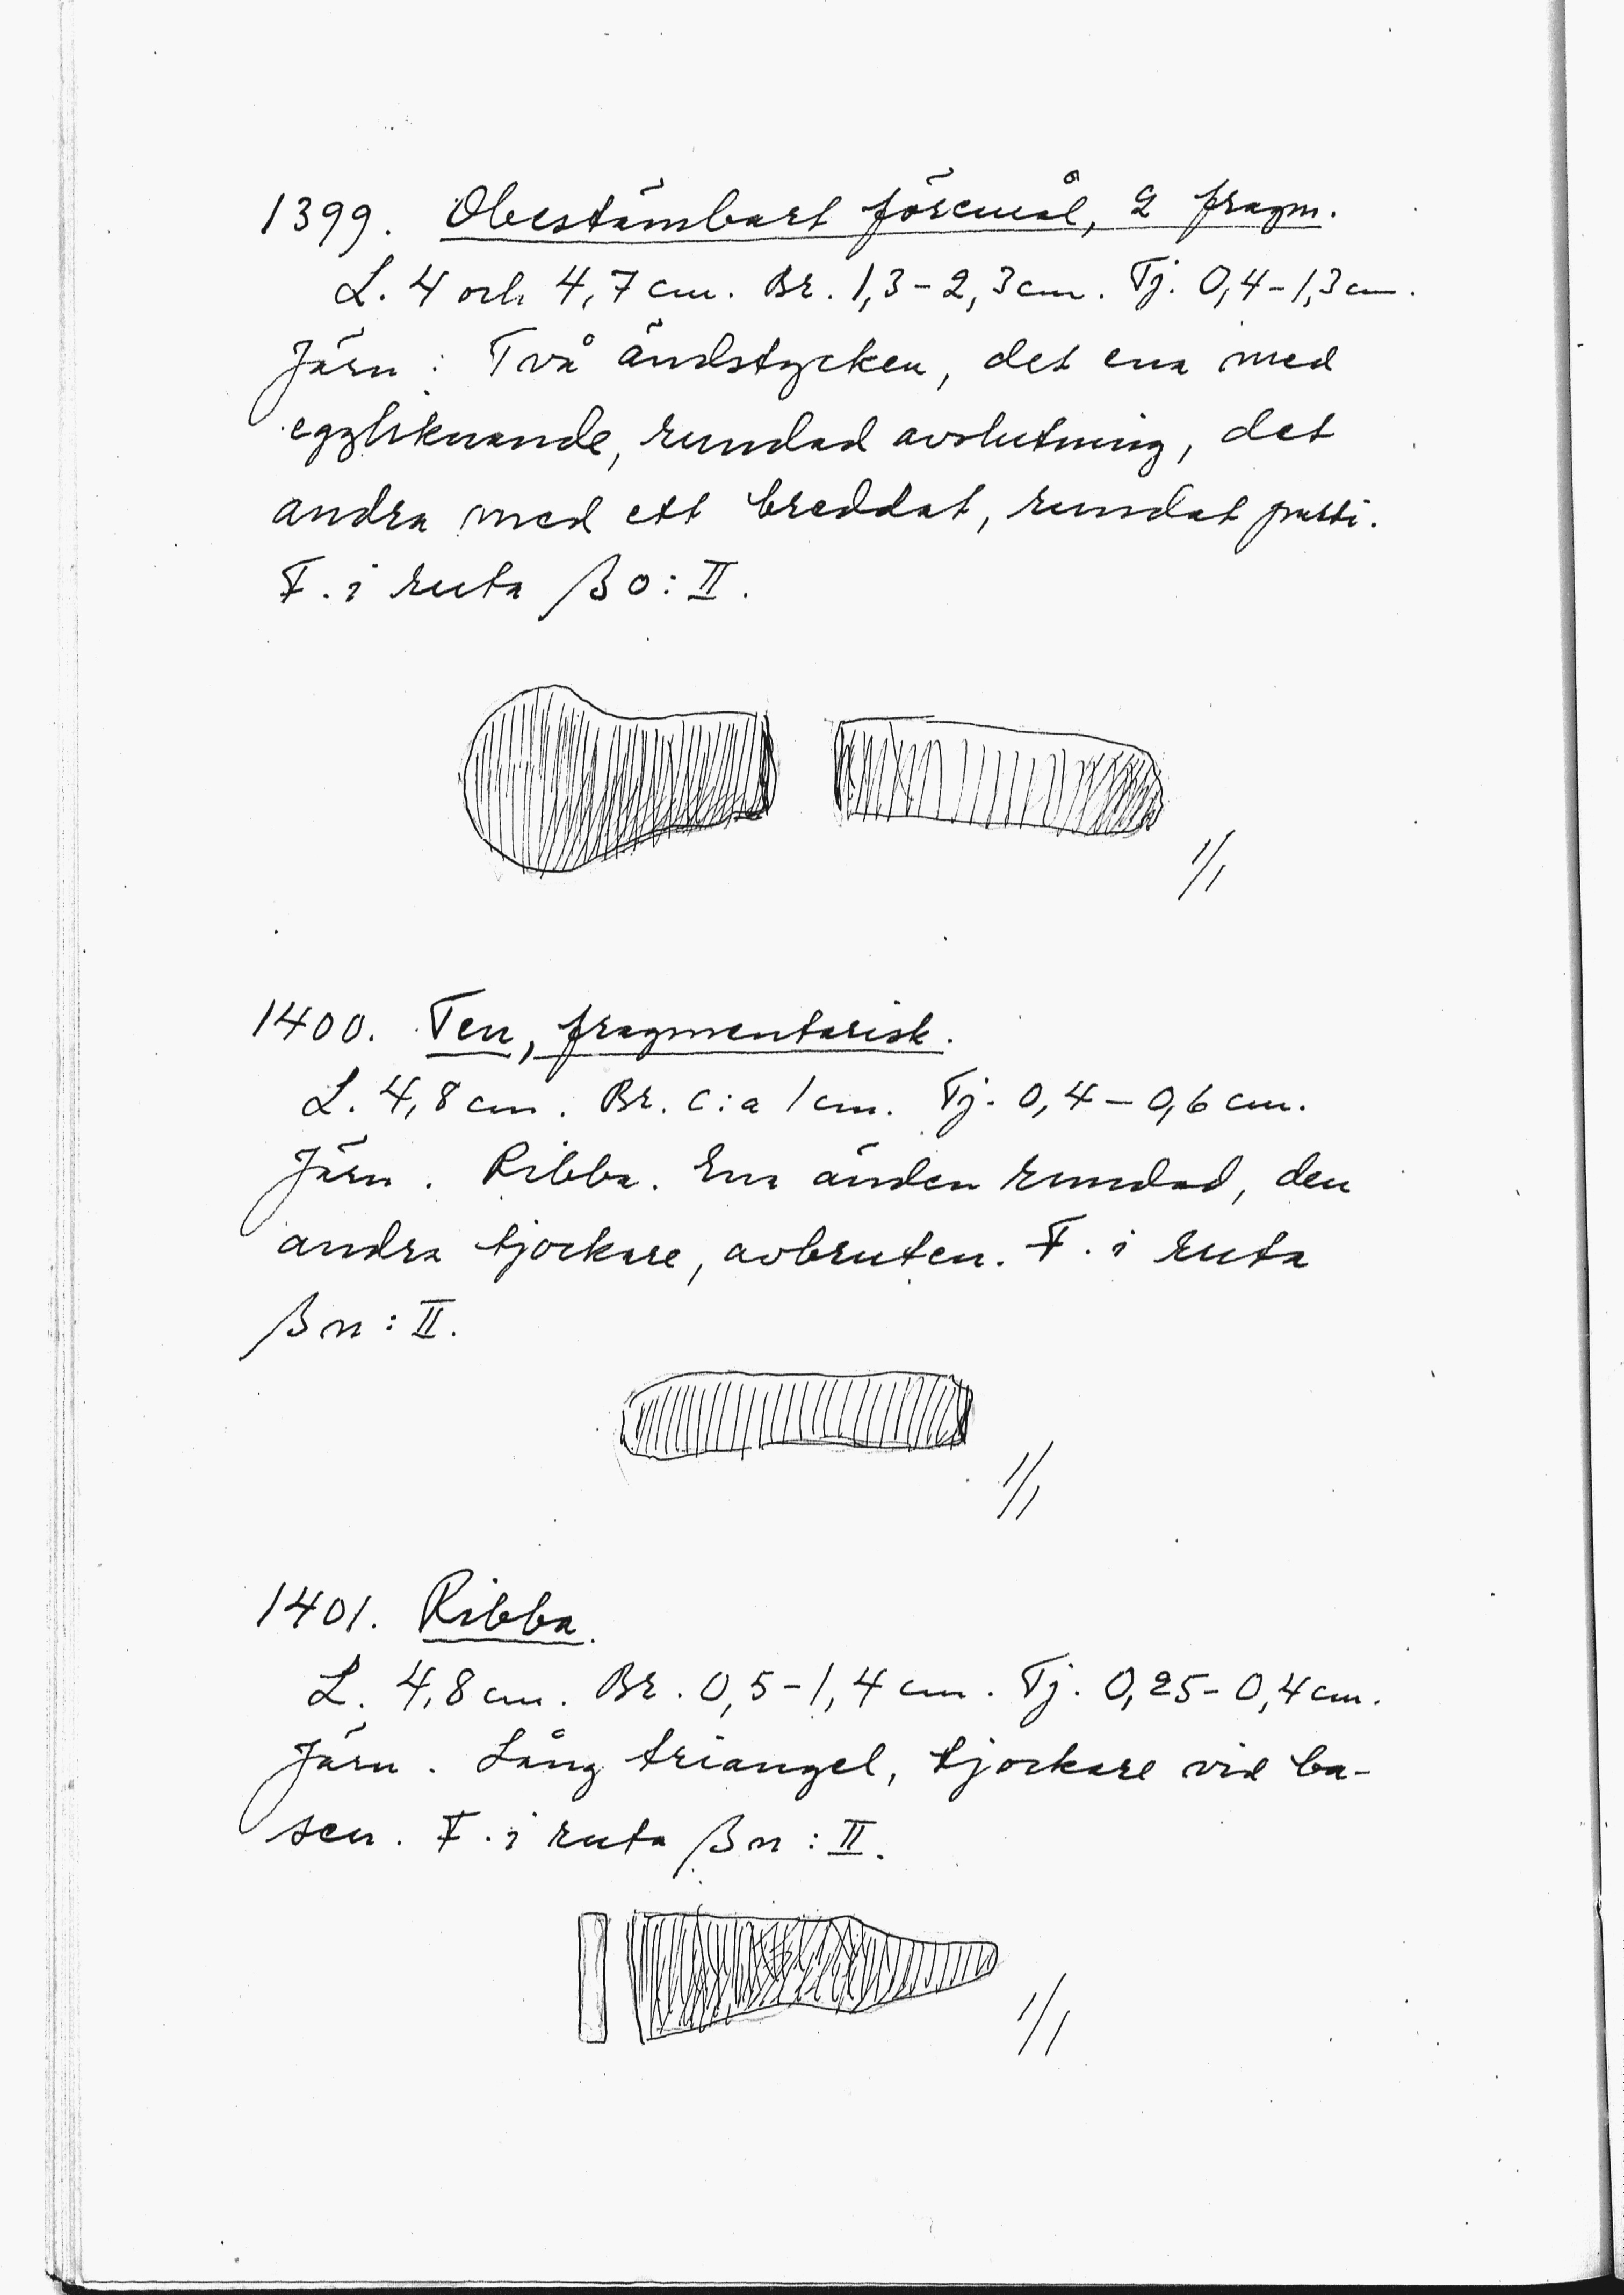 1399. Obestämbart föremål, 2 fragm.
L. 4 och 4,7 cm. Br. 1,3-2,3 cm. Tj. 0,4-1,3 cm.
Järn: Två ändstycken, det ena med
eggliknande, rundad avslutning, det
andra med ett breddat, rundat parti.
F. i ruta βo: II.
1/1
1400. Ten, fragmentarisk.
L. 4,8 cm. Br. c:a 1 cm. Tj. 0,4-0,6 cm.
Järn. Ribba. Ena änden rundad, den
andra tjockare, avbruten. F. i ruta
βn: II.
1/1
1401. Ribba.
L. 4,8 cm. Br. 0,5-1,4 cm. Tj. 0,25-0,4 cm.
Järn. Lång triangel, tjockare vid ba-
sen. F. i ruta βn: II.
1/1